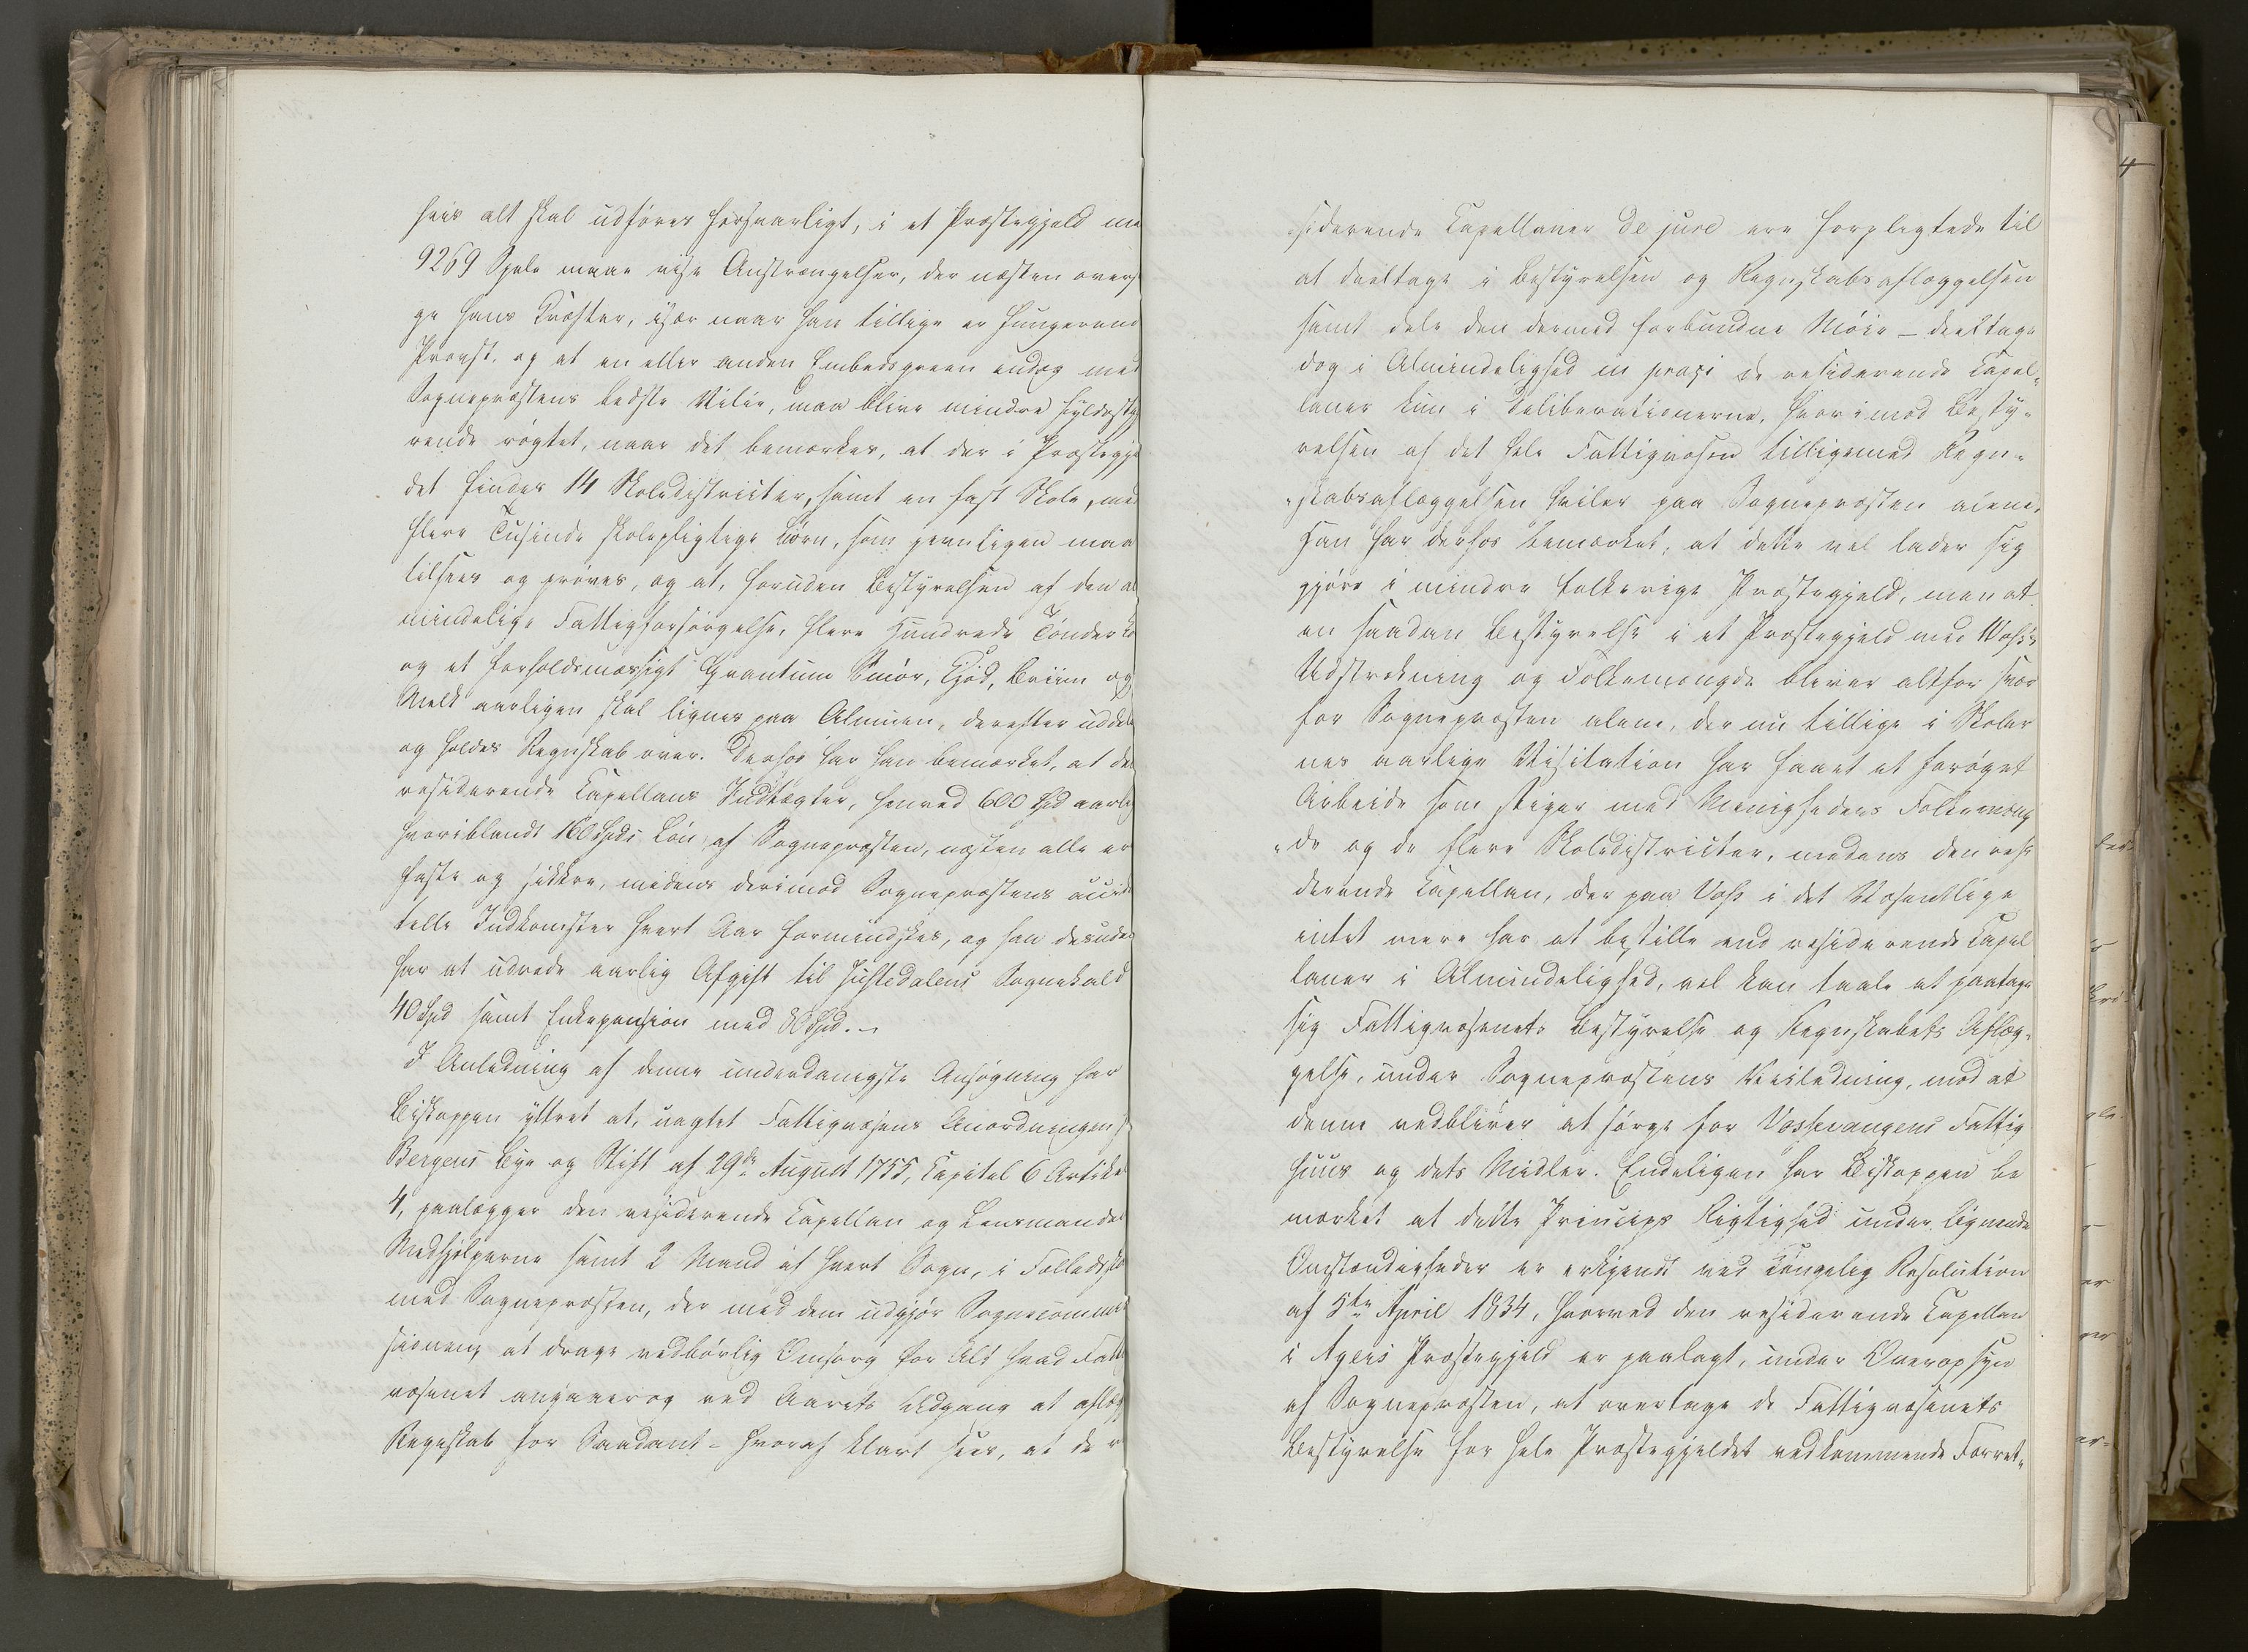 hvis alt skal udføres forsvarligt, i et Præstegjeld me
9269 Sjele maae vise Anstrængelser, der næsten overs
ge hans Kræfter, især naar han tillige er fungerend
Provst, og at en eller anden Embedsgreen endog med
Sognepræstens bedste Villie, maa blive mindre fyldestgj
rende røgtet, naar det bemærkes, at der i Præstegje
det findes 14 Skoledistricter, samt en fast Skole, med
flere Tusinde skolepligtige Børn, som jevnligen maa
tilsees og prøves, og at, foruden Bestyrelsen af den al
mindelige Fattigforsørgelse, flere Hundrede Tønder Ko
og et forholdsmæssigt Qvantum Smør, Kjød, Briim og
Melk aarligen skal lignes paa Almuen, derefter uddele
og holdes Regnskab over. Derhos har han bemærket, at den
residerende Capellans Indtægter, henved 600 Spd aarlig
hvoriblandt 160 Spds Løn af Sognepræsten, næsten alle er
faste og sikkre, medens derimod Sognepræstens acciden
telle Indkomster hvert Aar formindskes, og han desuden
har at udrede aarlig Afgift til Justedalens Sognekald
40 Spd samt Enkepension med 80 Spd. -
I Anledning af denne underdanigste Ansøgning har
Biskoppen yttret at, uagtet Fattigvæsens Anordningen f
Bergens Bye og Stift af 29de August 1755, Capitel 6 Artikel
4, paalægger den residerende Capellan og Lensmanden
Medhjelperne samt 2 Mænd af hvert Sogn, i Fælledsska
med Sognepræsten, der med dem udgjør Sognecommis
sionen, at drage vedbørlig Omsorg for Alt hvad Fattig
væsenet angaaer og ved Aarets Udgang at aflægg
Regnskab for Saadant - hvoraf klart sees, at de re
siderende Capellaner de jure ere forpligtede til
at deeltage i Bestyrelsen og Regnskabsaflæggelsen
samt dele den dermed forbundne Møie - deeltage
dog i Almindelighed in praxi de residerende Capel„
laner kun i Deliberationerne, hvorimod Besty„
relsen af det hele Fattigvæsen tilligemed Regn„
„skabsaflæggelsen hviler paa Sognepræsten alene.
Han har derhos bemærket, at dette vel lader sig
gjøre i mindre folkerige Præstegjeld, men at
en saadan Bestyrelse i et Præstegjeld med Woss's
Udstrækning og Folkemængde bliver altfor svær
for Sognepræsten alene, der nu tillige i Skoler
nes aarlige Visitation har faaet et forøget
Arbeide som stiger med Menighedens Folkemæng
„de og de flere Skoledistricter, medens den resi
derende Capellan, der paa Voss i det Væsentlige
intet mere har at bestille end residerende Capel
laner i Almindelighed, vel kan taale at paatage
sig Fattigvæsenets Bestyrelse og Regnskabets Aflæg„
gelse, under Sognepræstens Veiledning, mod at
denne vedbliver at sørge for Vossevangens Fattig
huus og dets Midler. Endeligen har Biskoppen be
mærket at dette Princips Rigtighed under lignende
Omstændigheder er erkjendt ved Kongelig Resolution
af 5te April 1834, hvorved den residerende Capellan
i Agers Præstegjeld er paalagt, under Overopsyn
af Sognepræsten, at overtage de Fattigvæsenets
Bestyrelse for hele Præstegjeldet vedkommende Forret„